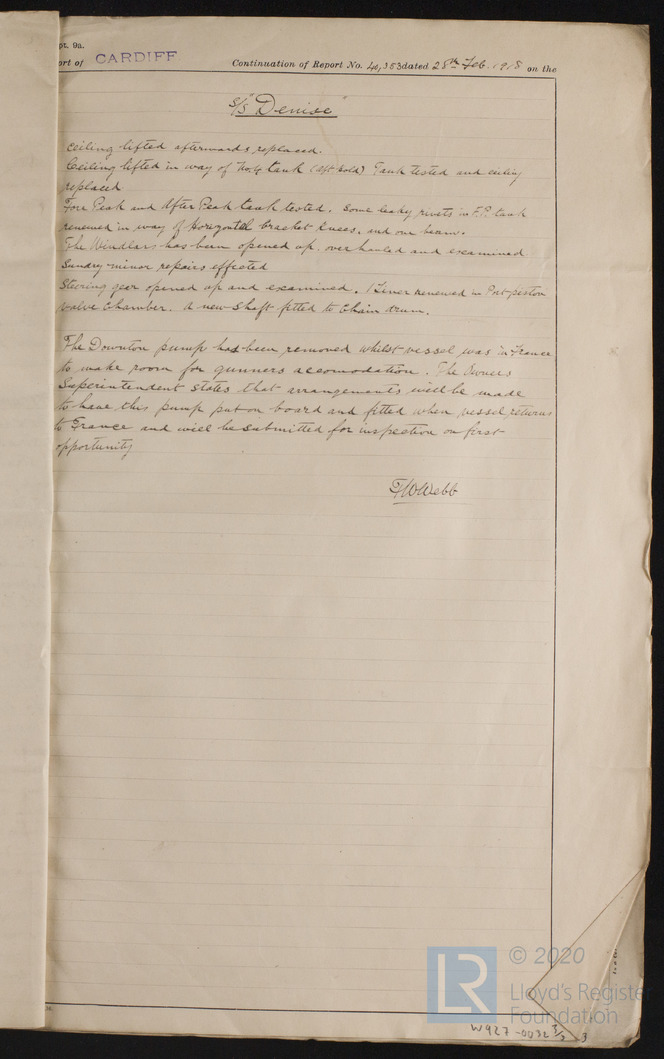 pt. 9a.
ort of CARDIFF Continuation of Report No. 40,353 dated 28th Feb. 1918 on the
S/S "Denise"
Ceiling lifted afterwards replaced.
Ceiling lifted in way of No.4 tank (aft hold) Tank tested and ceiling
replaced
Fore Peak and After Peak tank tested. Some leaky rivets in F.P. tank
renewed in way of Horizontal bracket knees, and one beam.
The Windlass has been opened up overhauled and examined
Sundry minor repairs effected
Steering gear opened up and examined. 1 Liner renewed in Port piston
valve chamber. A new shaft fitted to chain drum.
The Downton pump has been removed whilst vessel was in France
to make room for gunners accomodation. The Owners
Superintendent states that arrangements will be made
to have this pump put on board and fitted when vessel returns
to France and will be submitted for inspection on first
opportunity
FWWebb
© 2020
LR
Lloyd's Register
Foundation
W927-0032 3/3